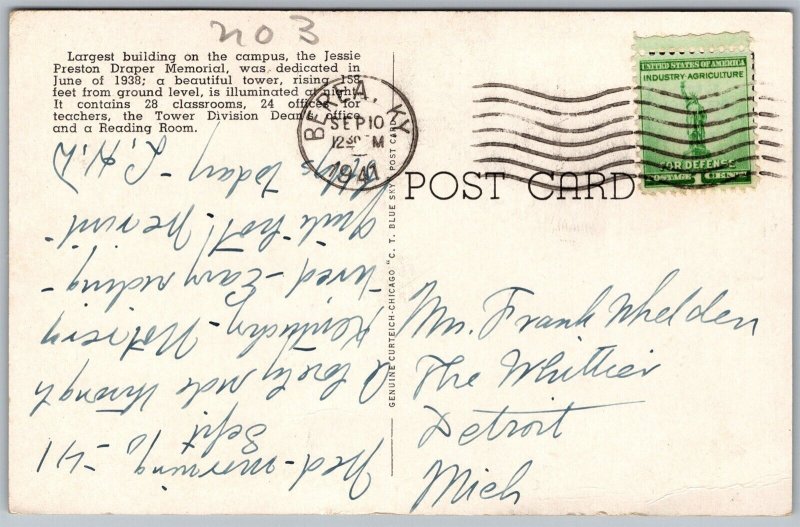 no 3
Largest building on the campus, the Jessie
Preston Draper Memorial, was dedicated in
June of 1938; a beautiful tower, rising 158
feet from ground level, is illuminated at night.
It contains 28 classrooms, 24 offices for
teachers, the Tower Division Dean's office
and a Reading Room.
BEREA, KY.
SEP 10
12 30 PM
1941
UNITED STATES OF AMERICA
INDUSTRY-AGRICULTURE
FOR DEFENSE
POSTAGE 1 CENT
POST CARD
GENUINE CURTEICH-CHICAGO "C. T. BLUE SKY" POST CARD
Wed-morning
Sept 10-41
A lovely ride through
Kentucky-Not very
tired-Easy riding-
Quite hot!
today-
Mr. Frank Whelden
The Whittier
Detroit
Mich